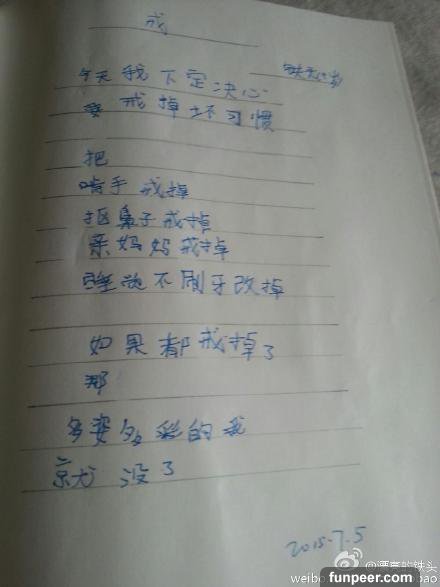 戒
铁头八岁
今天我下定决心
要戒掉坏习惯
把
啃手戒掉
抠鼻子戒掉
亲妈妈戒掉
睡觉不刷牙改掉
如果都戒掉了
那
多姿多彩的我
就没了
2015.7.5
@漂亮的铁头
weibo
funpeer.com